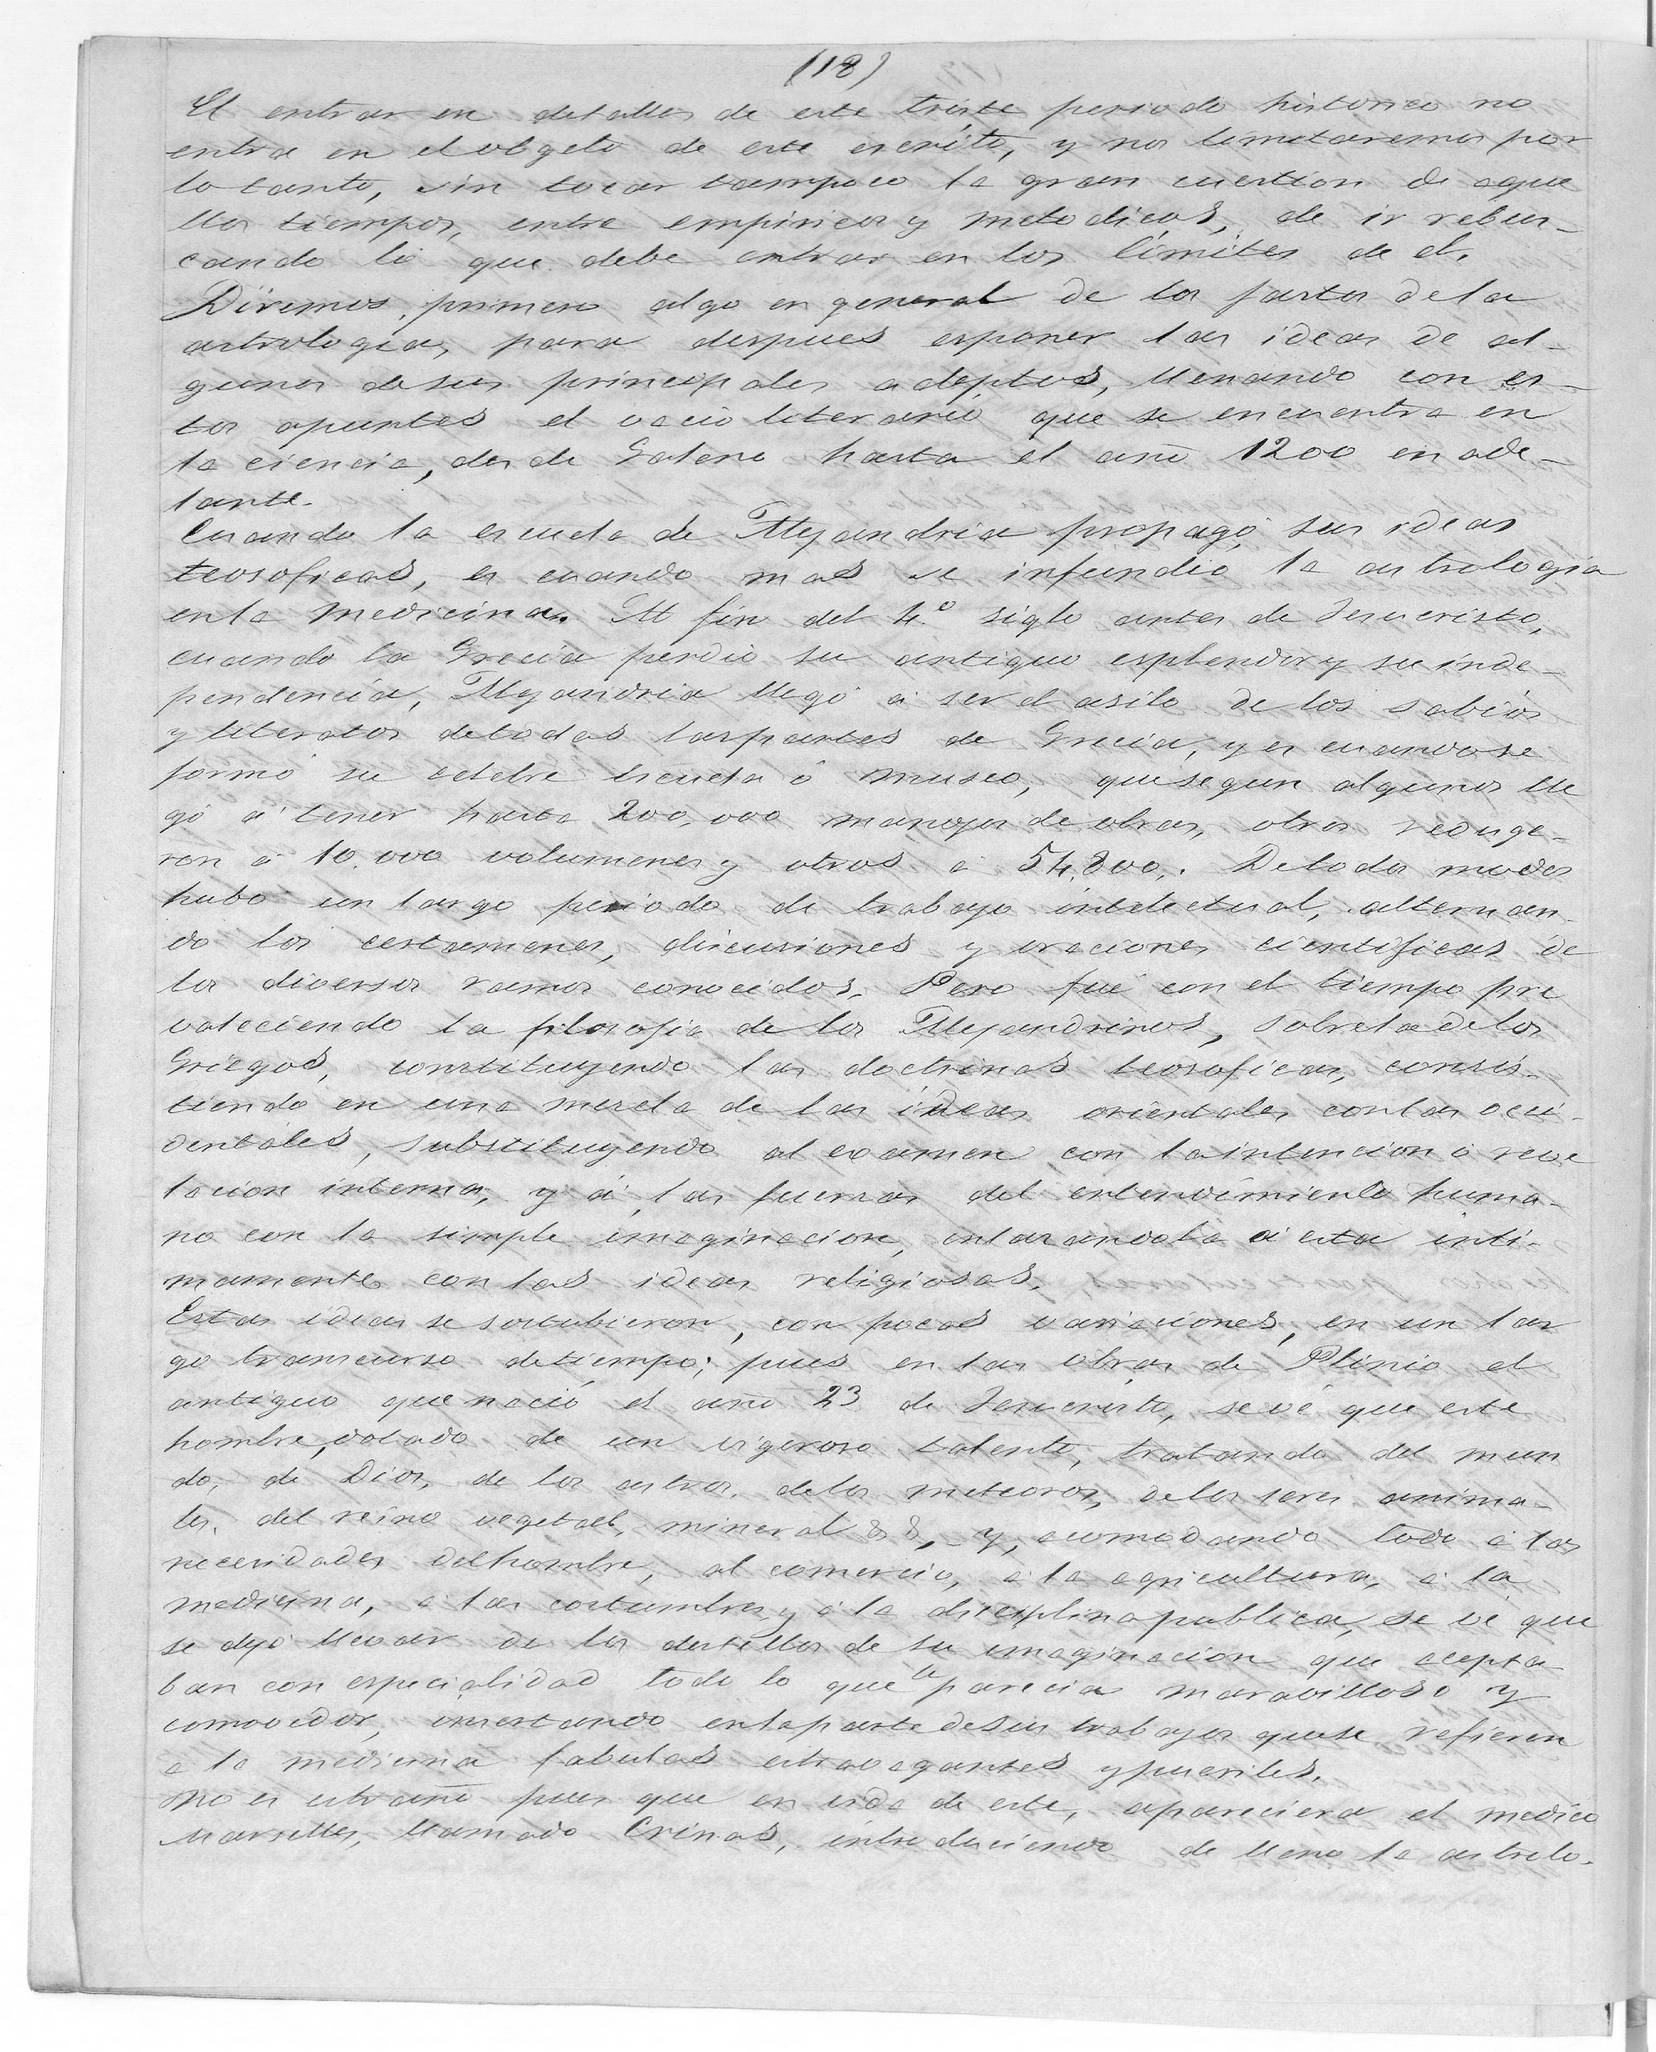 (18)
El entrar en detalles de este triste periodo historico no
entra en el obgeto de este escrito, y nos limitaremos por
lo tanto, sin tocar tampoco la gran cuestion de aque
llos tiempos, entre empiricos y metodicos, de ir rebus-
cando lo que debe entrar en los límites de el.
Diremos, primero algo en general de los fastos de la
astrologia, para despues esponer las ideas de al-
gunos de sus principales adeptos, llenando con es-
tos apuntes el vacio literario que se encuentra en
la ciencia, desde Galeno hasta el año 1200 en ade-
lante.
Cuando la escuela de Alejandria propagó sus ideas
teosoficas, es cuando mas se infundió la astrologia
en la medicina. Al fin del 4.º siglo antes de Jesucristo,
cuando la Grecia perdió su antiguo esplendor y su inde-
pendencia, Alejandria llegó a ser el asilo de los sabios
y literatos de todas las partes de Grecia, y es cuando se
formó su celebre escuela ó museo, que segun algunos lle
gó a tener hasta 200,000 manojos de obras, otros reduge-
ron a 10.000 volumenes y otros a 54.800. De todos modos
hubo un largo periodo de trabajo intelectual, alternan-
do los certamenes, discusiones y oraciones cientificas de
los diversos ramos conocidos. Pero fué con el tiempo pre
valeciendo la filosofia de los Alejandrinos, sobre la de los
Griegos, constituyendo las doctrinas teosoficas, consis-
tiendo en una mezcla de las ideas orientales con las occi-
dentales, substituyendo al examen con la intencion ó reve
lacion interna, y á las fuerzas del entendimiento huma-
no con la simple imaginacion, enlazandola á esta inti-
mamente con las ideas religiosas.
Estas ideas se sostubieron, con pocas variaciones, en un lar
go transcurso de tiempo; pues en las obras de Plinio el
antiguo que nació el año 23 de Jesucristo, se vé que este
hombre, dotado de un vigoroso talento, tratando del mun
do, de Dios, de los astros, de los meteoros, de los seres anima-
les, del reino vegetal, mineral && y, acomodando todo a las
necesidades del hombre, al comercio, a la agricultura, a la
medicina, a las costumbres y á la disciplina publica, se vé que
se dejó llevar de los destellos de su imaginacion que acepta
ban con especialidad todo lo que le parecia maravilloso y
comovedor, insertando en la parte de sus trabajos que se refieren
a la medicina fabulas estravagantes y pueriles.
No es estraño pues que en vida de este, apareciera el medico
Marselles, llamado Crinas, introduciendo de lleno la astrolo-